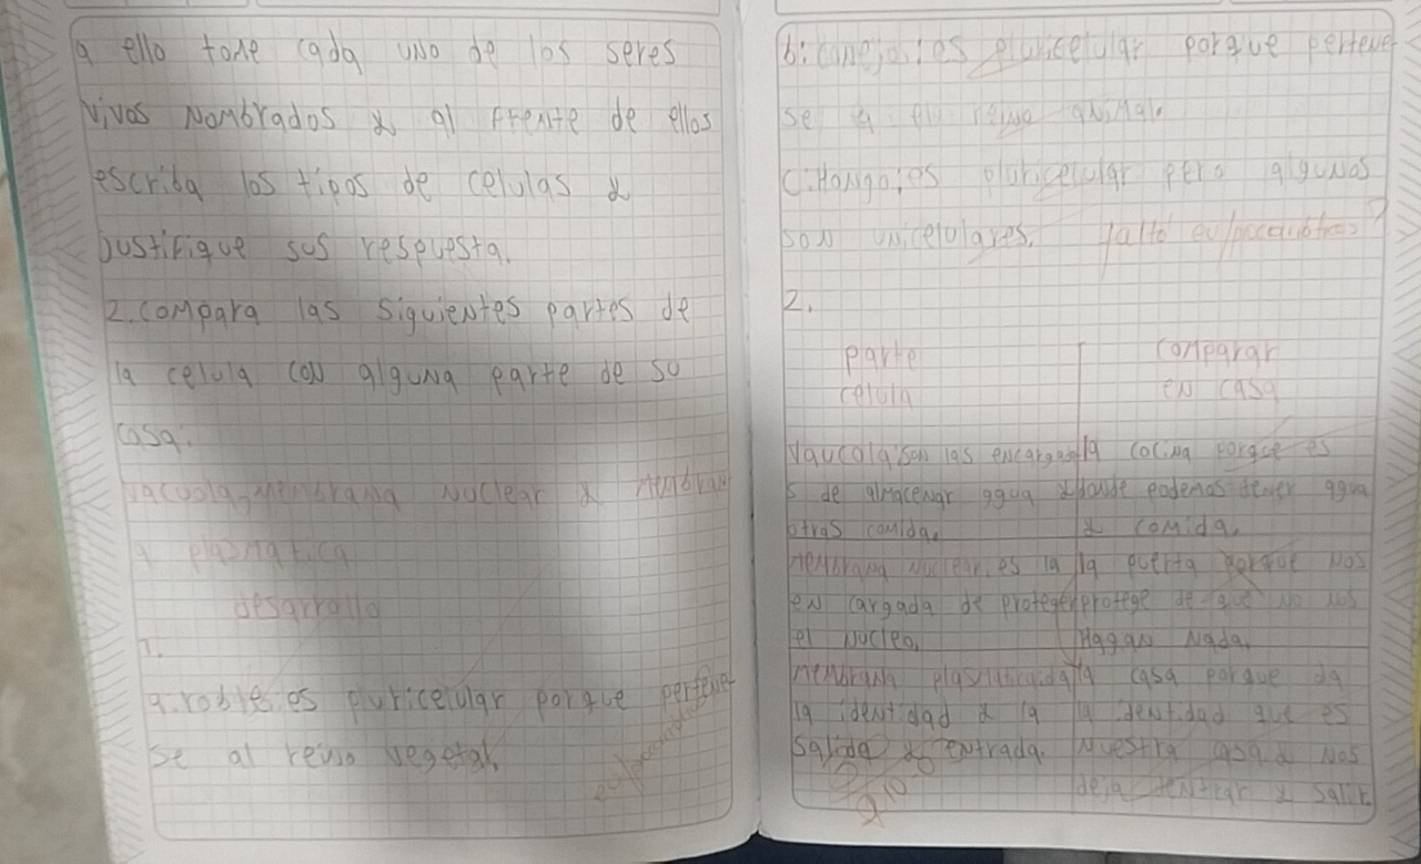 a ello tome cada uno de los seres
vivos nombrados y al frente de ellos
escriba los tipos de celulas y
justifique sus respuesta.
2. compara las siguientes partes de
la celula con alguna parte de su
casa.
vacuola, membrana nuclear y membran
a plasmatica
desarrollo
1.
a. roble: es pluricelular porque pertene
se al reino vegetal.
b: conejo: es pluricelular porque pertene
se a el reino animal.
C. Hongo: es pluricelular pero algunos
son unicelulares. falto eu/procariotas?
2.
parte celula
comparar en casa
Vaucola: son las encargada
s de almacenar agua y
otras comida.
la cocina porque es
donde podemos tener agua
y comida.
membrana nuclear: es la
en cargada de proteger
el nucleo.
la puerta porque nos
protege de que no nos
Hagan nada.
membrana plasmatica: da
la identidad y la
salida y entrada.
la casa porque da
la identidad que es
nuestra casa y nos
deja entrar y salir